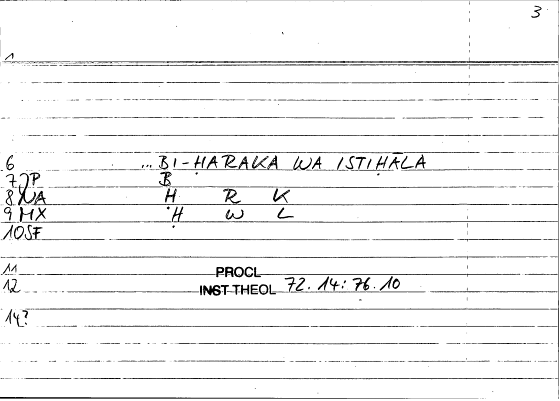 3
1
6 ...BI-ḤARAKA WA ISTIḤĀLA
7 JP B
8 NA Ḥ R K
9 MX Ḥ W L
10 SF
11 PROCL
12 INST THEOL 72.14: 76.10
14?